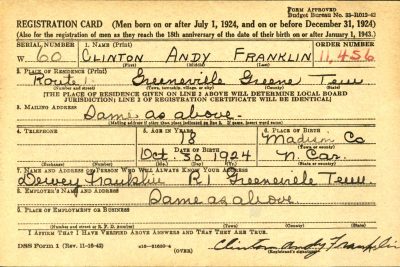 FORM APPROVED
Budget Bureau No. 33-R015-42
REGISTRATION CARD (Men born on or after July 1, 1924, and on or before December 31, 1924)
(Also for the registration of men as they reach the 18th anniversary of the date of their birth on or after January 1, 1943.)
SERIAL NUMBER 1. NAME (Print) ORDER NUMBER
W 60 CLINTON ANDY FRANKLIN 11,456
(First) (Middle) (Last)
2. PLACE OF RESIDENCE (Print)
Route 1. Greeneville Greene Tenn
(Number and street) (Town, township, village, or city) (County) (State)
[THE PLACE OF RESIDENCE GIVEN ON LINE 2 ABOVE WILL DETERMINE LOCAL BOARD
JURISDICTION; LINE 2 OF REGISTRATION CERTIFICATE WILL BE IDENTICAL]
3. MAILING ADDRESS
Same as above.
(Mailing address if other than place indicated on line 2. If same, insert word same)
4. TELEPHONE 5. AGE IN YEARS 6. PLACE OF BIRTH
18 Madison Co
DATE OF BIRTH (Town or county)
Oct. 30 1924 N. Car.
(Exchange) (Number) (Mo.) (Day) (Yr.) (State or country)
7. NAME AND ADDRESS OF PERSON WHO WILL ALWAYS KNOW YOUR ADDRESS
Dewey Franklin R1 Greeneville Tenn
8. EMPLOYER'S NAME AND ADDRESS
Same as above.
9. PLACE OF EMPLOYMENT OR BUSINESS
(Number and street or R. F. D. number) (Town) (County) (State)
I AFFIRM THAT I HAVE VERIFIED ABOVE ANSWERS AND THAT THEY ARE TRUE.
DSS Form 1 (Rev. 11-16-42) (OVER) Clinton Andy Franklin
(Registrant's signature)